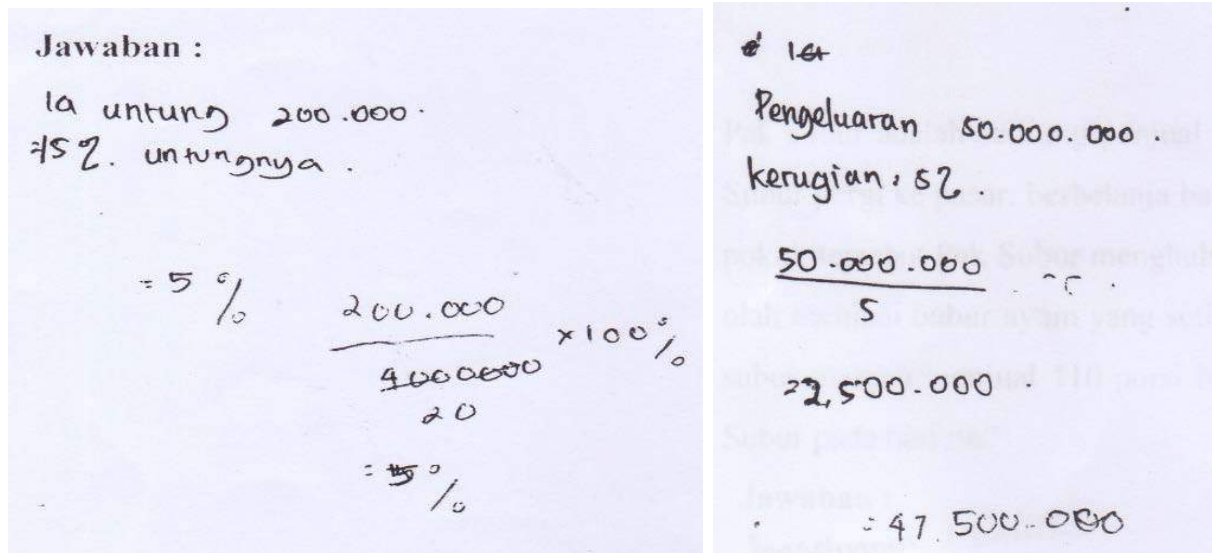 Jawaban :
Ia untung 200.000.
5%. untungnya.
= 5 %
200.000
4000000
20
×100%
= 5 %
Pengeluaran 50.000.000.
kerugian : 5%.
50.000.000
5
= 2,500.000.
= 47.500.000